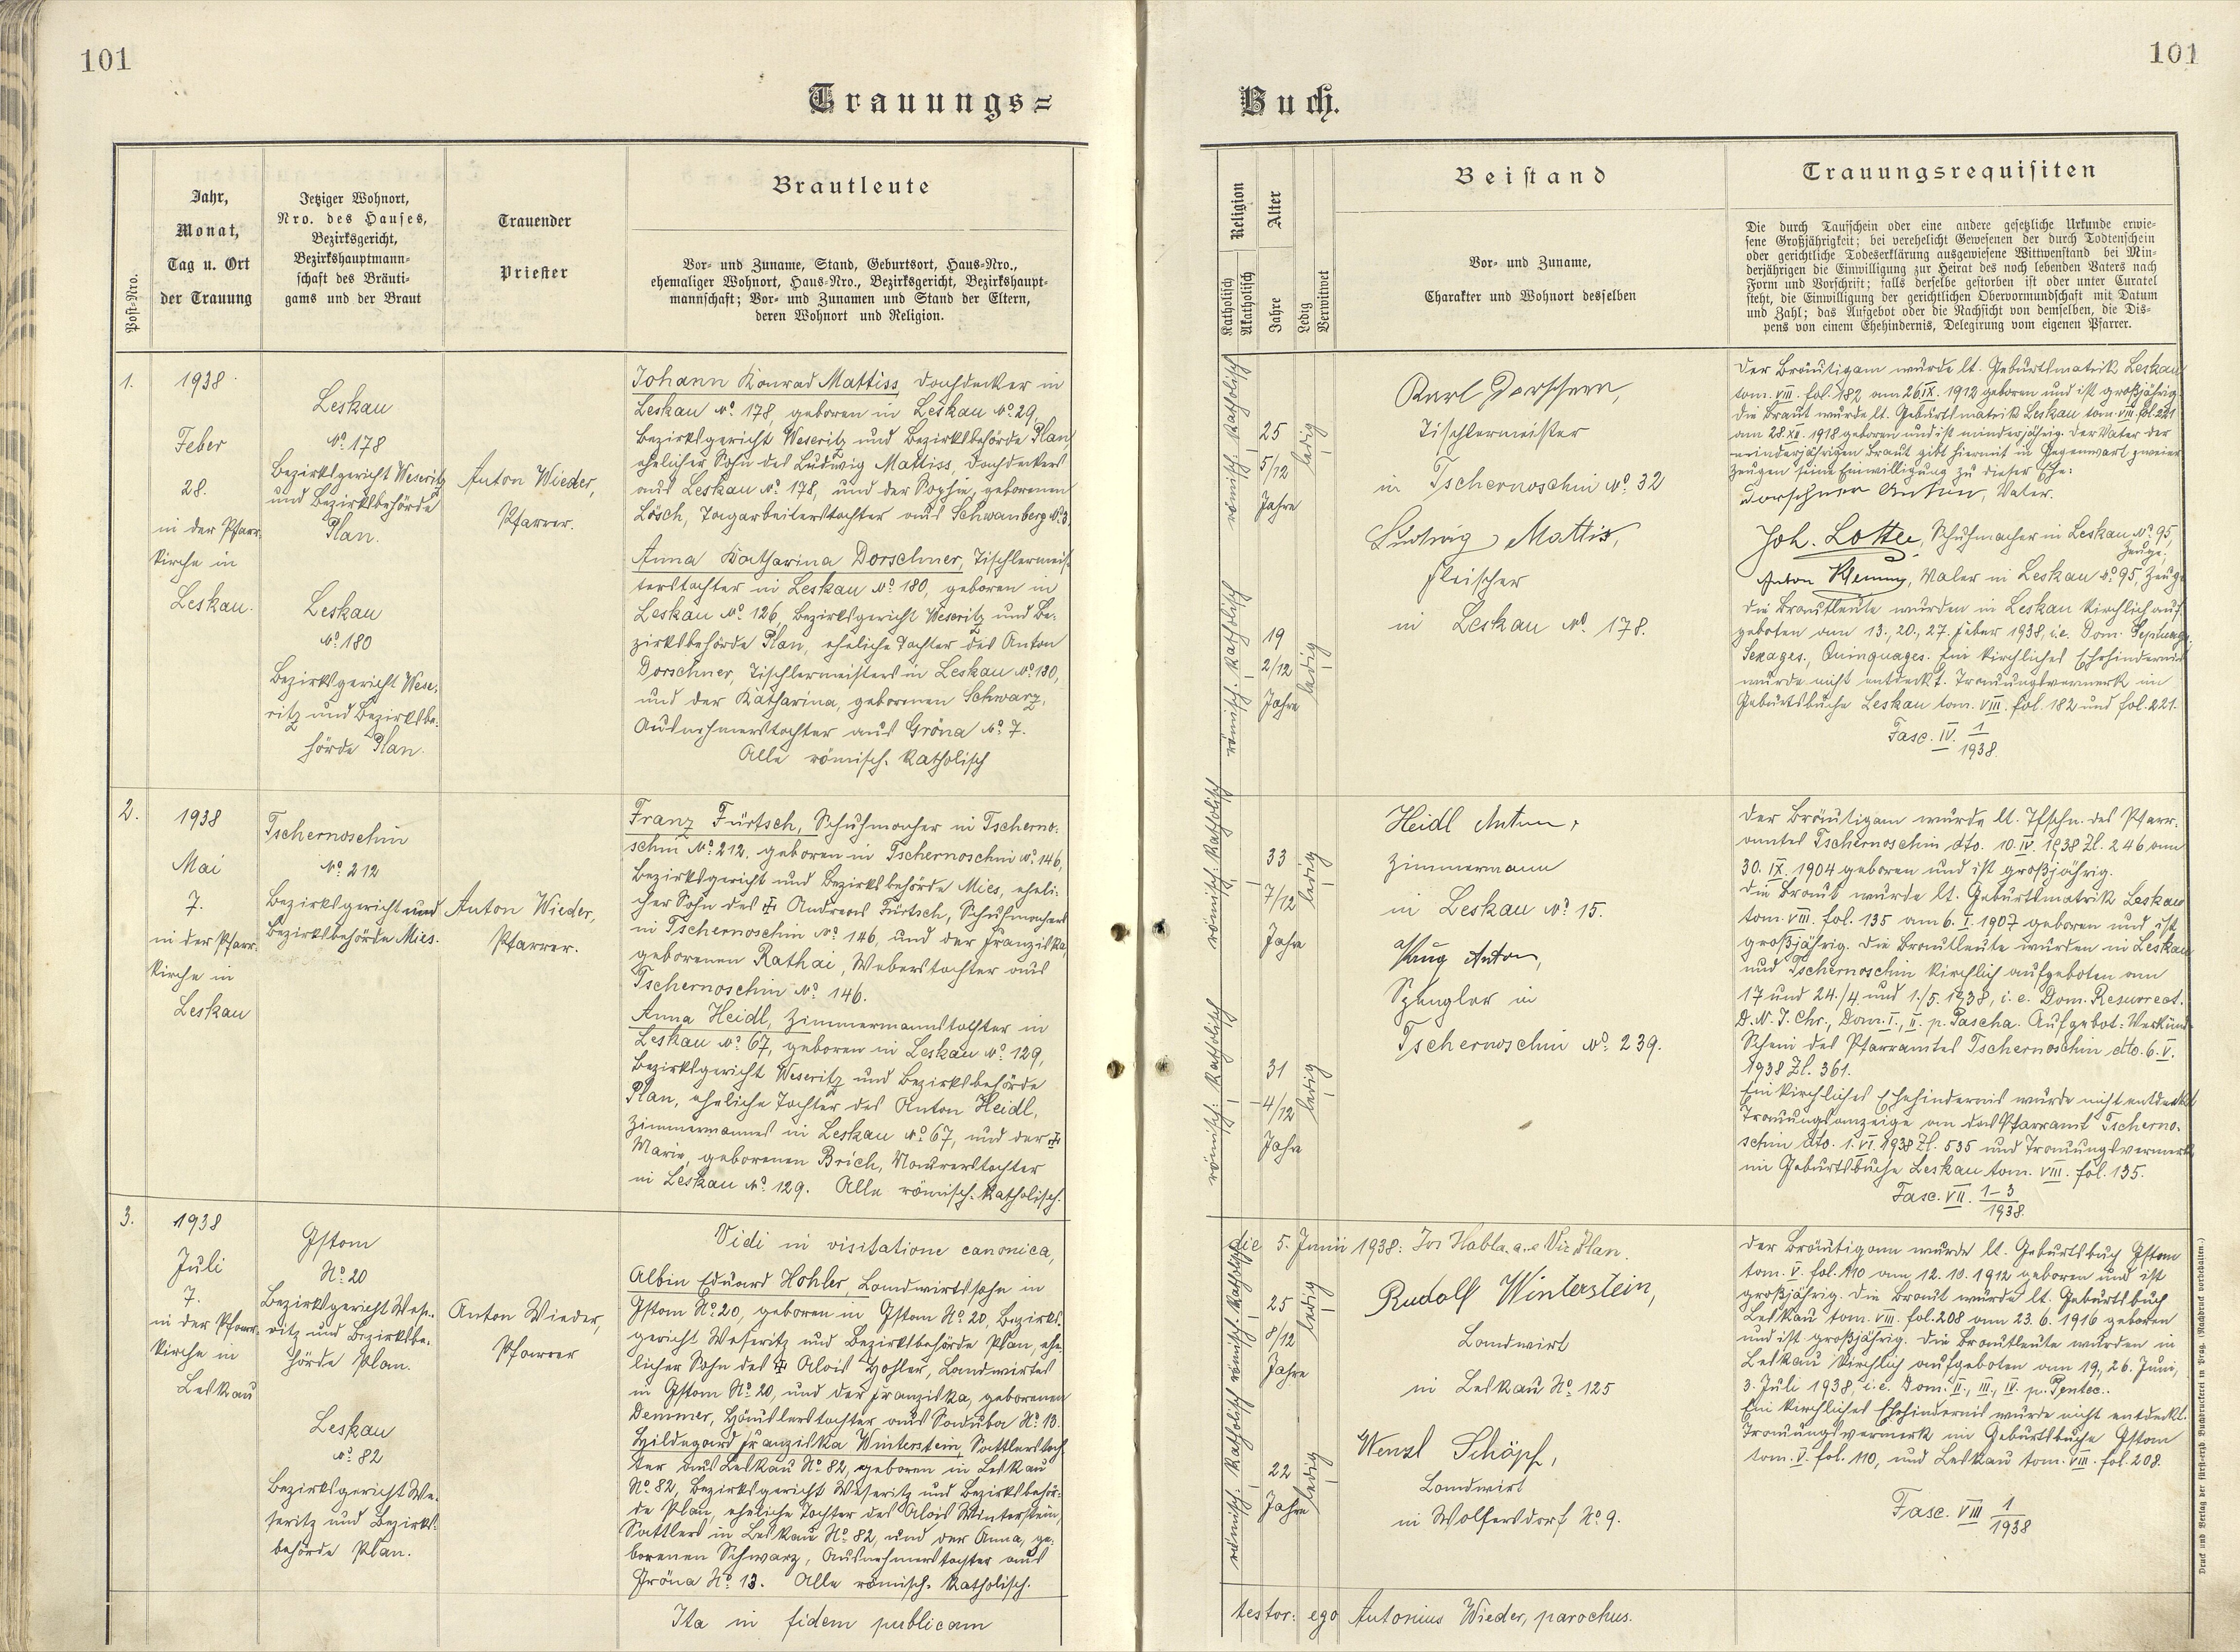 101
101
Trauungs=
Buch.
Post-Nro.
Jahr,
Monat,
Tag u. Ort
der Trauung
Jetziger Wohnort,
Nro. des Hauses,
Bezirksgericht,
Bezirkshauptmann-
schaft des Bräuti-
gams und der Braut
Trauender
Priester
Brautleute
Vor- und Zuname, Stand, Geburtsort, Haus-Nro.,
ehemaliger Wohnort, Haus-Nro., Bezirksgericht, Bezirkshaupt-
mannschaft; Vor- und Zunamen und Stand der Eltern,
deren Wohnort und Religion.
Religion
Katholisch
Akatholisch
Alter
Jahre
Ledig
Verwitwet
Beistand
Vor- und Zuname,
Charakter und Wohnort desselben
Trauungsrequisiten
Die durch Taufschein oder eine andere gesetzliche Urkunde erwie-
sene Großjährigkeit; bei verehelicht Gewesenen der durch Todtenschein
oder gerichtliche Todeserklärung ausgewiesene Wittwenstand bei Min-
derjährigen die Einwilligung zur Heirat des noch lebenden Vaters nach
Form und Vorschrift; falls derselbe gestorben ist oder unter Curatel
steht, die Einwilligung der gerichtlichen Obervormundschaft mit Datum
und Zahl; das Aufgebot oder die Nachsicht von demselben, die Dis-
pens von einem Ehehindernis, Delegirung vom eigenen Pfarrer.
1.
1938
Feber
28.
in der Pfarr-
kirche in
Leskau.
Leskau
No. 178
Bezirksgericht Weseritz
und Bezirksbehörde
Plan.
Leskau
No. 180
Bezirksgericht Wese-
ritz und Bezirksbe-
hörde Plan.
Anton Wieder,
Pfarrer.
Johann Konrad Mattiss, Dachdecker in
Leskau No. 178, geboren in Leskau No. 29,
Bezirksgericht Weseritz und Bezirksbehörde Plan
ehelicher Sohn des Ludwig Mattiss, Dachdeckers
aus Leskau No. 178, und der Sophie, geborenen
Lösch, Tagarbeiterstochter aus Schwanberg No. 3.
Anna Katharina Dorschner, Tischlermeis-
terstochter in Leskau No. 180, geboren in
Leskau No. 126, Bezirksgericht Weseritz und Be-
zirksbehörde Plan, eheliche Tochter des Anton
Dorschner, Tischlermeisters in Leskau No. 180,
und der Katharina, geborenen Schwarz,
Ausnehmerstochter aus Gröna No. 7.
Alle römisch-katholisch
römisch-katholisch
25
5/12
Jahre
ledig
römisch-katholisch
19
2/12
Jahre
ledig
Karl Dorschner,
Tischlermeister
in Tschernoschin No. 32
Ludwig Mattis,
Fleischer
in Leskau No. 178.
Der Bräutigam wurde lt. Geburtsmatrik Leskau
tom. VIII. fol. 182 am 26.IX. 1912 geboren und ist großjährig.
Die Braut wurde lt. Geburtsmatrik Leskau tom. VIII. fol. 221
am 28.XII. 1918 geboren und ist minderjährig. Der Vater der
minderjährigen Braut gibt hiermit in Gegenwart zweier
Zeugen seine Einwilligung zu dieser Ehe:
Dorschner Anton, Vater.
Joh. Lotte, Schuhmacher in Leskau No. 95,
Zeuge.
Anton, Maler in Leskau No. 95, Zeuge
Die Brautleute wurden in Leskau kirchlich auf-
geboten am 13., 20., 27. Feber 1938, i.e. Dom. Septuag.,
Sexages., Quinquages. Ein kirchliches Ehehindernis
wurde nicht entdeckt. Trauungsvermerk im
Geburtsbuche Leskau tom. VIII. fol. 182 und fol. 221.
Fasc. IV. 1/1938
2.
1938
Mai
7.
in der Pfarr-
kirche in
Leskau
Tschernoschin
No. 212
Bezirksgericht und
Bezirksbehörde Mies.
Anton Wieder,
Pfarrer.
Franz Fürtsch, Schuhmacher in Tscherno-
schin No. 212, geboren in Tschernoschin No. 146,
Bezirksgericht und Bezirksbehörde Mies, eheli-
cher Sohn des ✠ Andreas Fürtsch, Schuhmachers
in Tschernoschin No. 146, und der Franziska,
geborenen Rathai, Weberstochter aus
Tschernoschin No. 146.
Anna Heidl, Zimmermannstochter in
Leskau No. 67, geboren in Leskau No. 129,
Bezirksgericht Weseritz und Bezirksbehörde
Plan, eheliche Tochter des Anton Heidl,
Zimmermannes in Leskau No. 67, und der ✠
Marie, geborenen Brich, Maurerstochter
in Leskau No. 129. Alle römisch-katholisch.
römisch-katholisch
33
7/12
Jahre
ledig
römisch-katholisch
31
4/12
Jahre
ledig
Heidl Anton,
Zimmermann
in Leskau No. 15.
Anton,
Spengler in
Tschernoschin No. 239.
Der Bräutigam wurde lt. Tfschn. des Pfarr-
amtes Tschernoschin dto. 10.IV. 1938 Zl. 246 am
30. IX. 1904 geboren und ist großjährig.
Die Braut wurde lt. Geburtsmatrik Leskau
tom. VIII. fol. 135 am 6. I. 1907 geboren und ist
großjährig. Die Brautleute wurden in Leskau
und Tschernoschin kirchlich aufgeboten am
17 und 24./4. und 1./5. 1938, i.e. Dom. Resurrect.
D. N. J. Chr., Dom. I., II. p. Pascha. Aufgebot-Verkünd-
Schein des Pfarramtes Tschernoschin dto. 6. V.
1938 Zl. 361.
Ein kirchliches Ehehindernis wurde nicht entdeckt
Trauungsanzeige an das Pfarramt Tscherno-
schin dto. 1. VI. 1938 Zl. 535 und Trauungsvermerk
im Geburtsbuche Leskau tom. VIII. fol. 135.
Fasc. VII. 1-3/1938
Vidi in visitatione canonica,
die 5. Junii 1938: Jos Habla
3.
1938
Juli
7.
in der Pfarr-
kirche in
Leskau
Gstom
No. 20
Bezirksgericht Wese-
ritz und Bezirksbe-
hörde Plan.
Leskau
No. 82
Bezirksgericht We-
seritz und Bezirks-
behörde Plan.
Anton Wieder,
Pfarrer
Albin Eduard Hohler, Landwirtssohn in
Gstom No. 20, geboren in Gstom No. 20, Bezirks-
gericht Weseritz und Bezirksbehörde Plan, ehe-
licher Sohn des ✠ Alois Hohler, Landwirtes
in Gstom No. 20, und der Franziska, geborenen
Demmer, Häuslerstochter aus Saduba No. 13.
Hildegard Franziska Winterstein, Sattlerstoch-
ter aus Leskau No. 82, geboren in Leskau
No. 82, Bezirksgericht Weseritz und Bezirksbehör-
de Plan, eheliche Tochter des Alois Winterstein,
Sattlers in Leskau No. 82, und der Anna, ge-
borenen Schwarz, Ausnehmerstochter aus
Gröna No. 13. Alle römisch-katholisch.
römisch-katholisch
25
8/12
Jahre
ledig
römisch-katholisch
22
Jahre
ledig
Rudolf Winterstein,
Landwirt
in Leskau No. 125
Wenzl Schöpf,
Landwirt
in Wolfersdorf No. 9.
Der Bräutigam wurde lt. Geburtsbuch Gstom
tom. V. fol. 110 am 12. 10. 1912 geboren und ist
großjährig. Die Braut wurde lt. Geburtsbuch
Leskau tom. VIII. fol. 208 am 23. 6. 1916 geboren
und ist großjährig. Die Brautleute wurden in
Leskau kirchlich aufgeboten am 19., 26. Juni,
3. Juli 1938, i.e. Dom. II., III., IV. p. Pentec..
Ein kirchliches Ehehindernis wurde nicht entdeckt.
Trauungsvermerk im Geburtsbuche Gstom
tom. V. fol. 110, und Leskau tom. VIII. fol. 208.
Fasc. VIII 1/1938
Ita in fidem publicam
testor: ego Antonius Wieder, parochus.
Druck und Verlag der fürst-erzb. Buchdruckerei in Prag. (Nachdruck vorbehalten.)